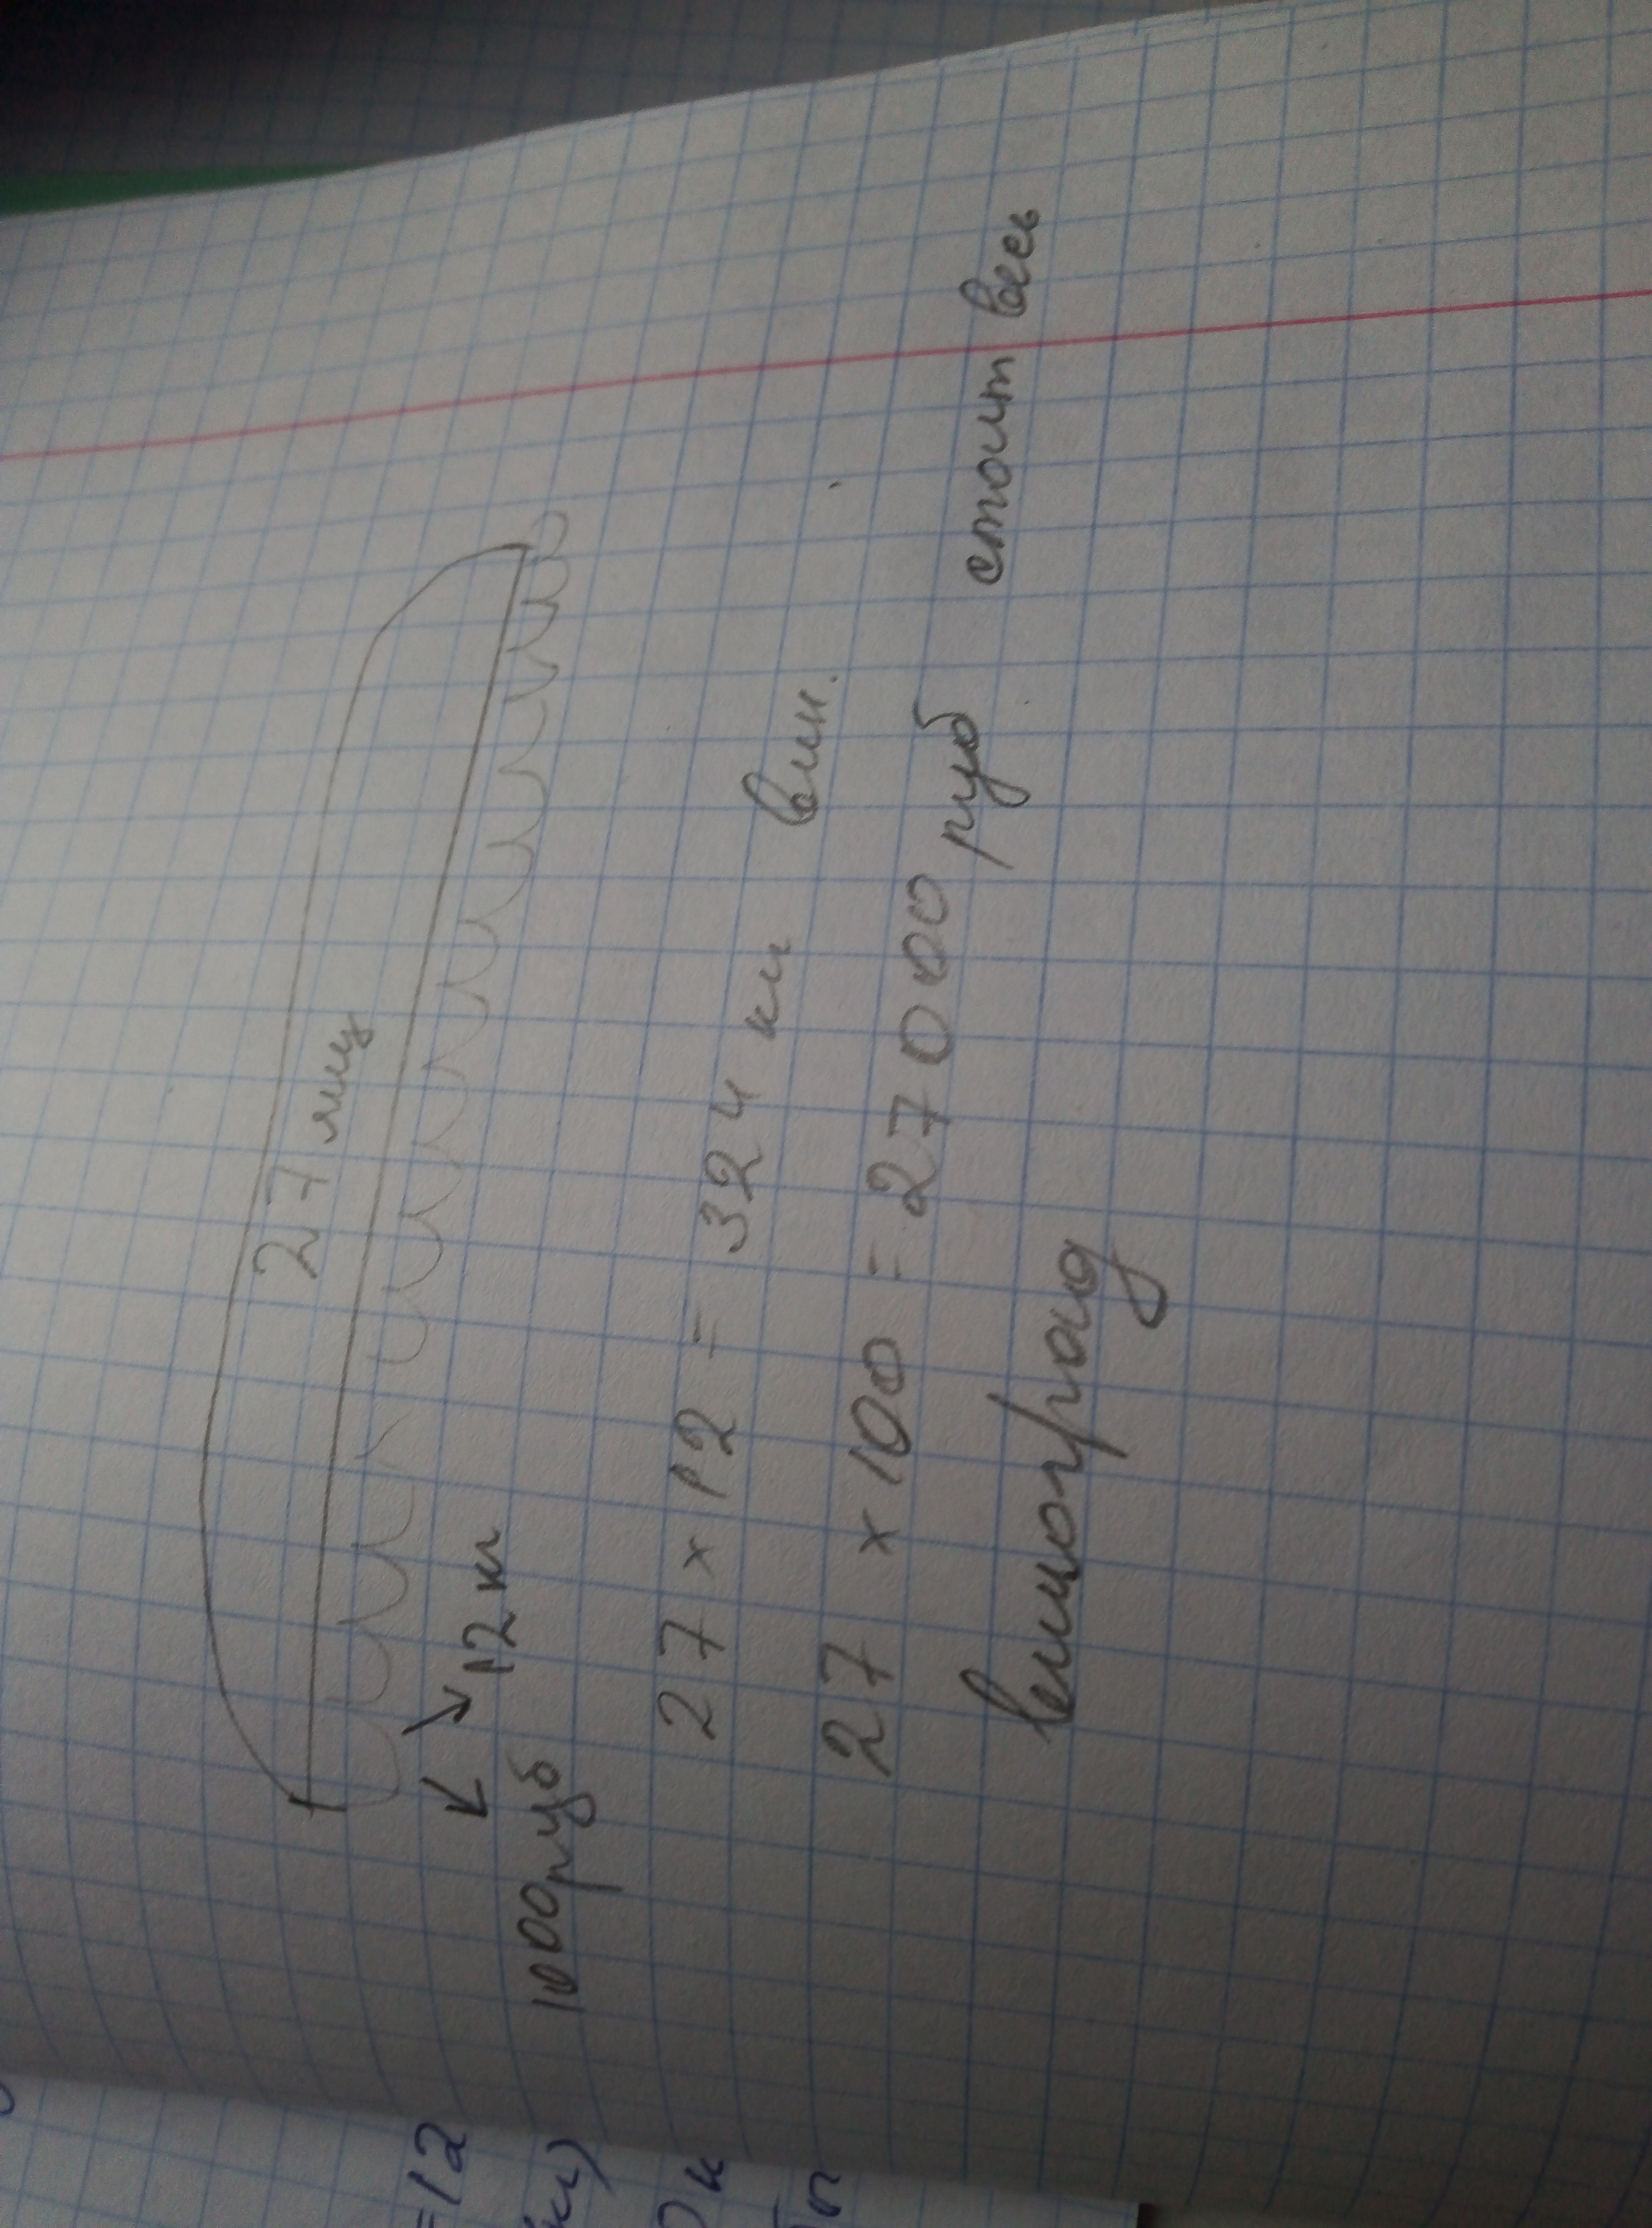 27 ящ
12 кг
1000 руб
27 × 12 = 324 кг вин.
27 × 100 = 27000 руб стоит весь
виноград
=12
(кг)